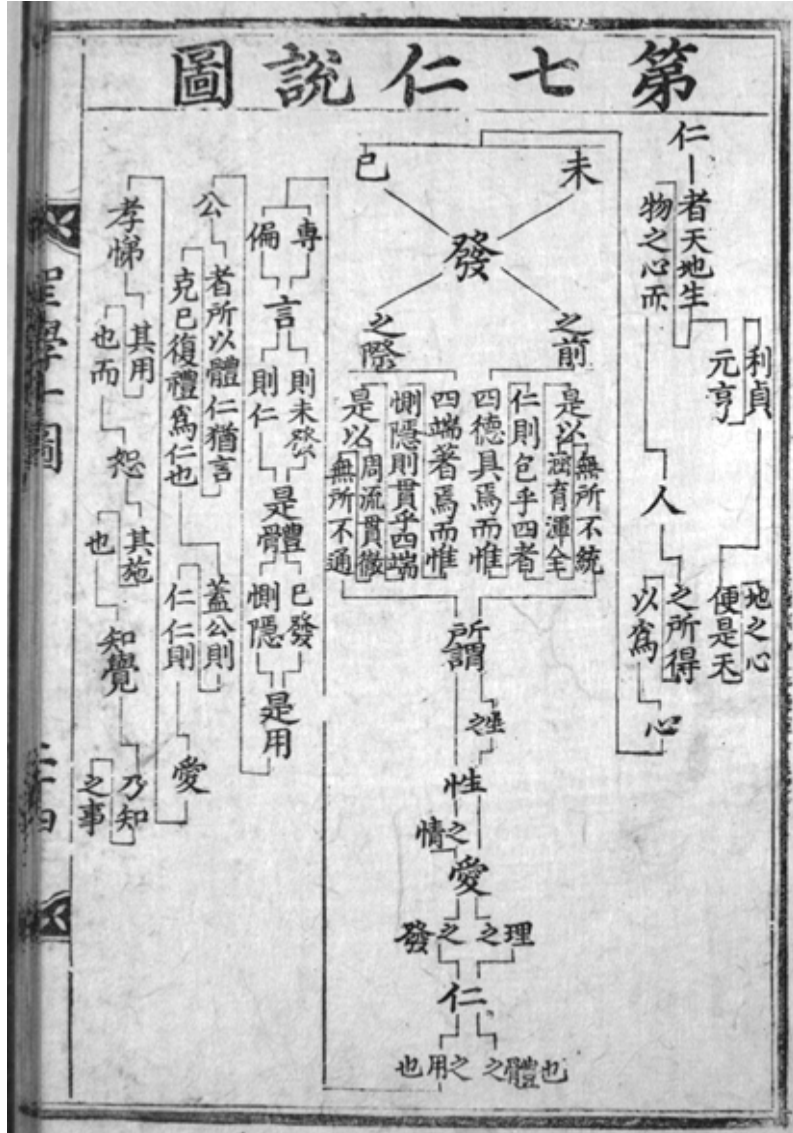 第七仁說圖
仁
者天地生
物之心而
利貞
元亨
地之心
便是天
人
之所得
以爲
心
未
已
發
之前
之際
是以
無所不統
涵育渾全
仁則包乎四者
四德具焉而惟
四端著焉而惟
惻隱則貫乎四端
是以
周流貫徹
無所不通
所謂
性
之
性
之
情
愛
之理
之發
仁
之體也
之用也
專
偏
言
則未發
則仁
是體
已發
惻隱
是用
公
者所以體仁猶言
克己復禮爲仁也
蓋公則
仁仁則
愛
孝悌
其用
也而
恕
其施
也
知覺
乃知
之事
聖學十圖
二十四